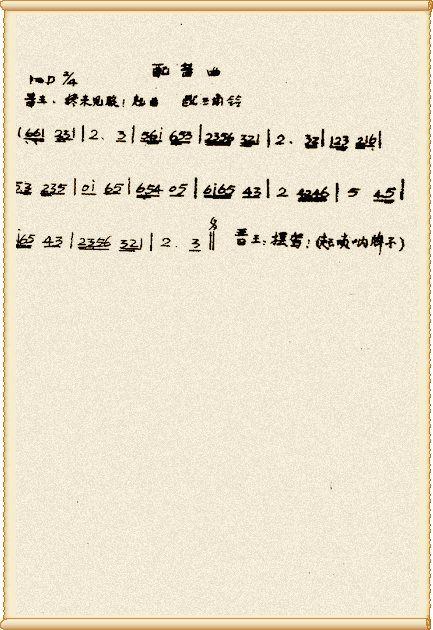 配 曲
1=D 2/4
晋王: 起曲
(661 231 | 2. 3 | 561 653 | 2356 321 | 2. 32 | 123 216 |
53 235 | 0i 65 | 654 05 | 6i65 43 | 2 4246 | 5 45 |
i65 43 | 2356 321 | 2. 3 || 晋王: 摆驾: (起唢呐牌子)